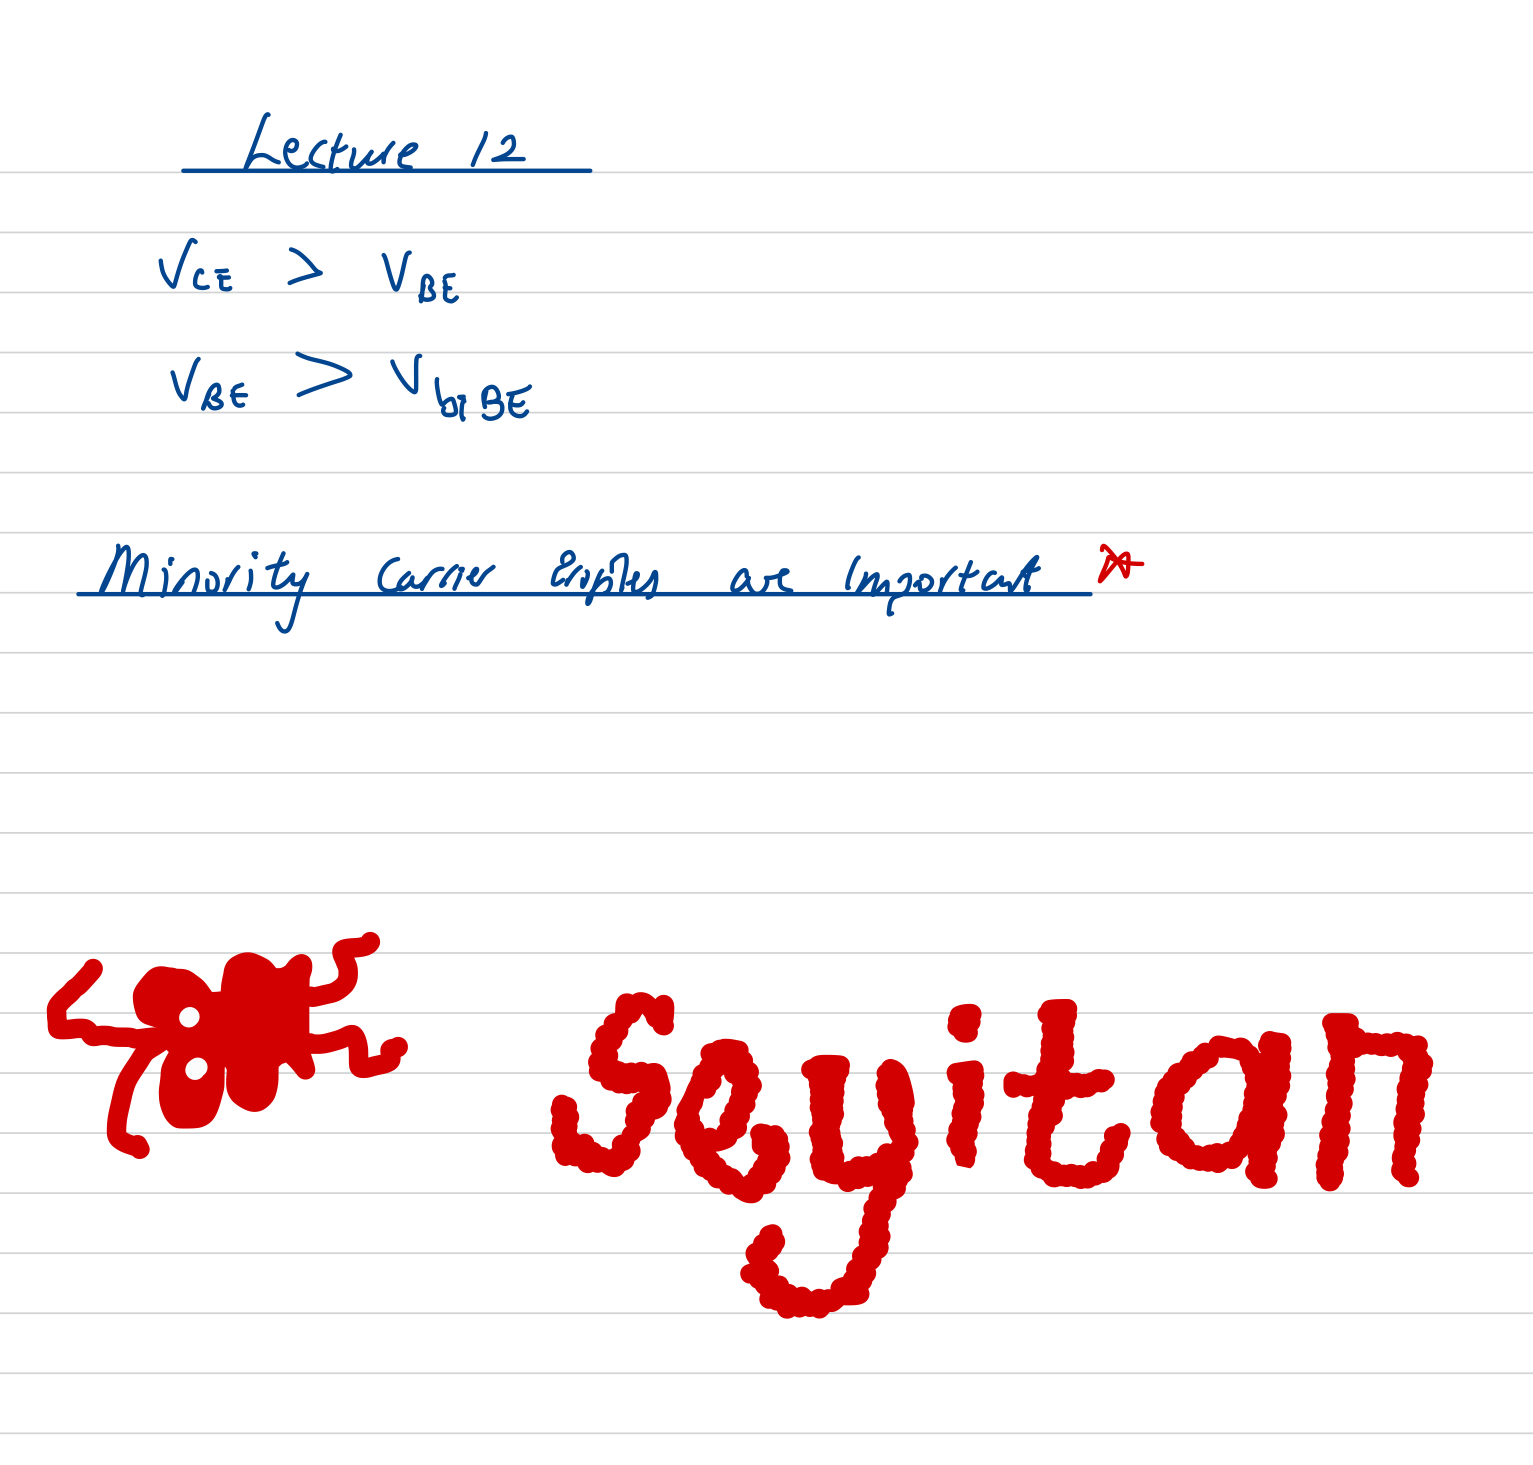 Lecture 12
VCE > VBE
VBE > VbiBE
Minority Carrier are Important
Seyitan